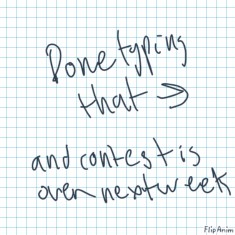 Done typing
that →
and contest is
over next week
FlipAnim